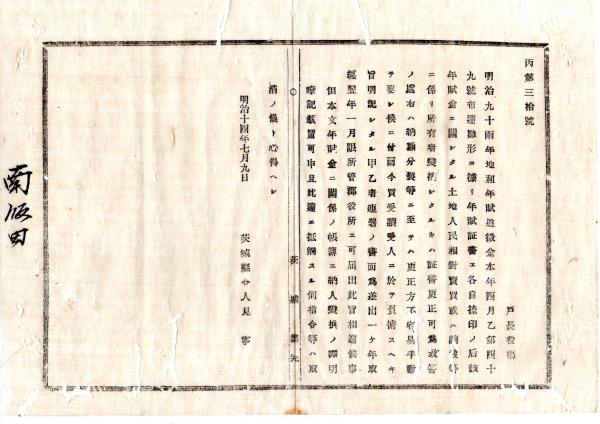 丙第三拾號
戸長役場
明治九十兩年地租年賦追徴金本年四月乙第四十
九號布達雛形ニ據リ年賦証書エ各自捺印ノ后該
年賦金ニ關シタル土地人民相對賣買或ハ讓渡等
ニ係リ所有者變換シタルトキハ証書更正可爲致筈
ノ處右ハ納額分裂等ニ至テハ更正方不容易手數
ヲ要シ候ニ付爾今買受讓受人ニ於テ負擔スヘキ
旨明記シタル甲乙者連署ノ書面爲差出一ケ年取
經翌年一月限所管郡役所エ可届出此旨相達候事
但本文年賦金ニ關係ノ帳簿エ納人變換ノ譯明
瞭記載置可申且此達ニ抵觸スル伺指令等ハ取
消ノ儀ト心得ヘシ
明治十四年七月九日
茨城縣令人見寧
茨城縣
南飯田